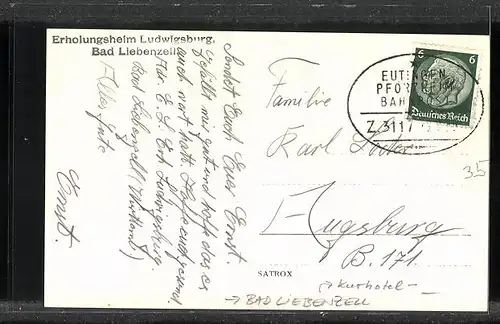 Erholungsheim Ludwigsburg,
Bad Liebenzell
Sendet Euch Euer Ernst.
Gefällt mir gut und hoffe das es
auch
Adr. E. L. Erh. Ludwigsburg
Bad Liebenzell (Württemb)
Alles gute
Ernst.
6 6
Deutsches Reich
EUTINGEN
PFORZHEIM
BAHN
Z.3117
Familie
Karl
35
Augsburg
B. 171.
SATROX
→ Kurhotel -
→ BAD LIEBENZELL